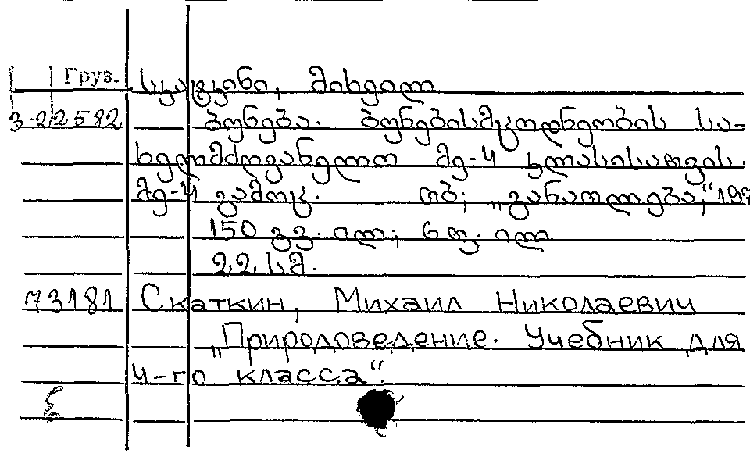 Груз. სკატკინი, მიხეილ
3-2 2582 ბუნება. ბუნებისმცოდნეობის სა-
ხელმძღვანელო მე-4 კლასისათვის.
მე-4 გამოც. თბ; „განათლება,“ 197
150 გვ. ილ.; 6 ფ. ილ
22 სმ.
73181 Скаткин, Михаил Николаевич
„Природоведение. Учебник для
4-го класса“.